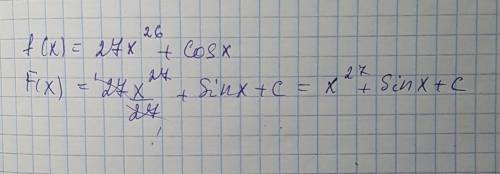 f(x) = 27x^26 + cosx
F(x) = 27x^27/27 + Sinx + C = x^27 + Sinx + C